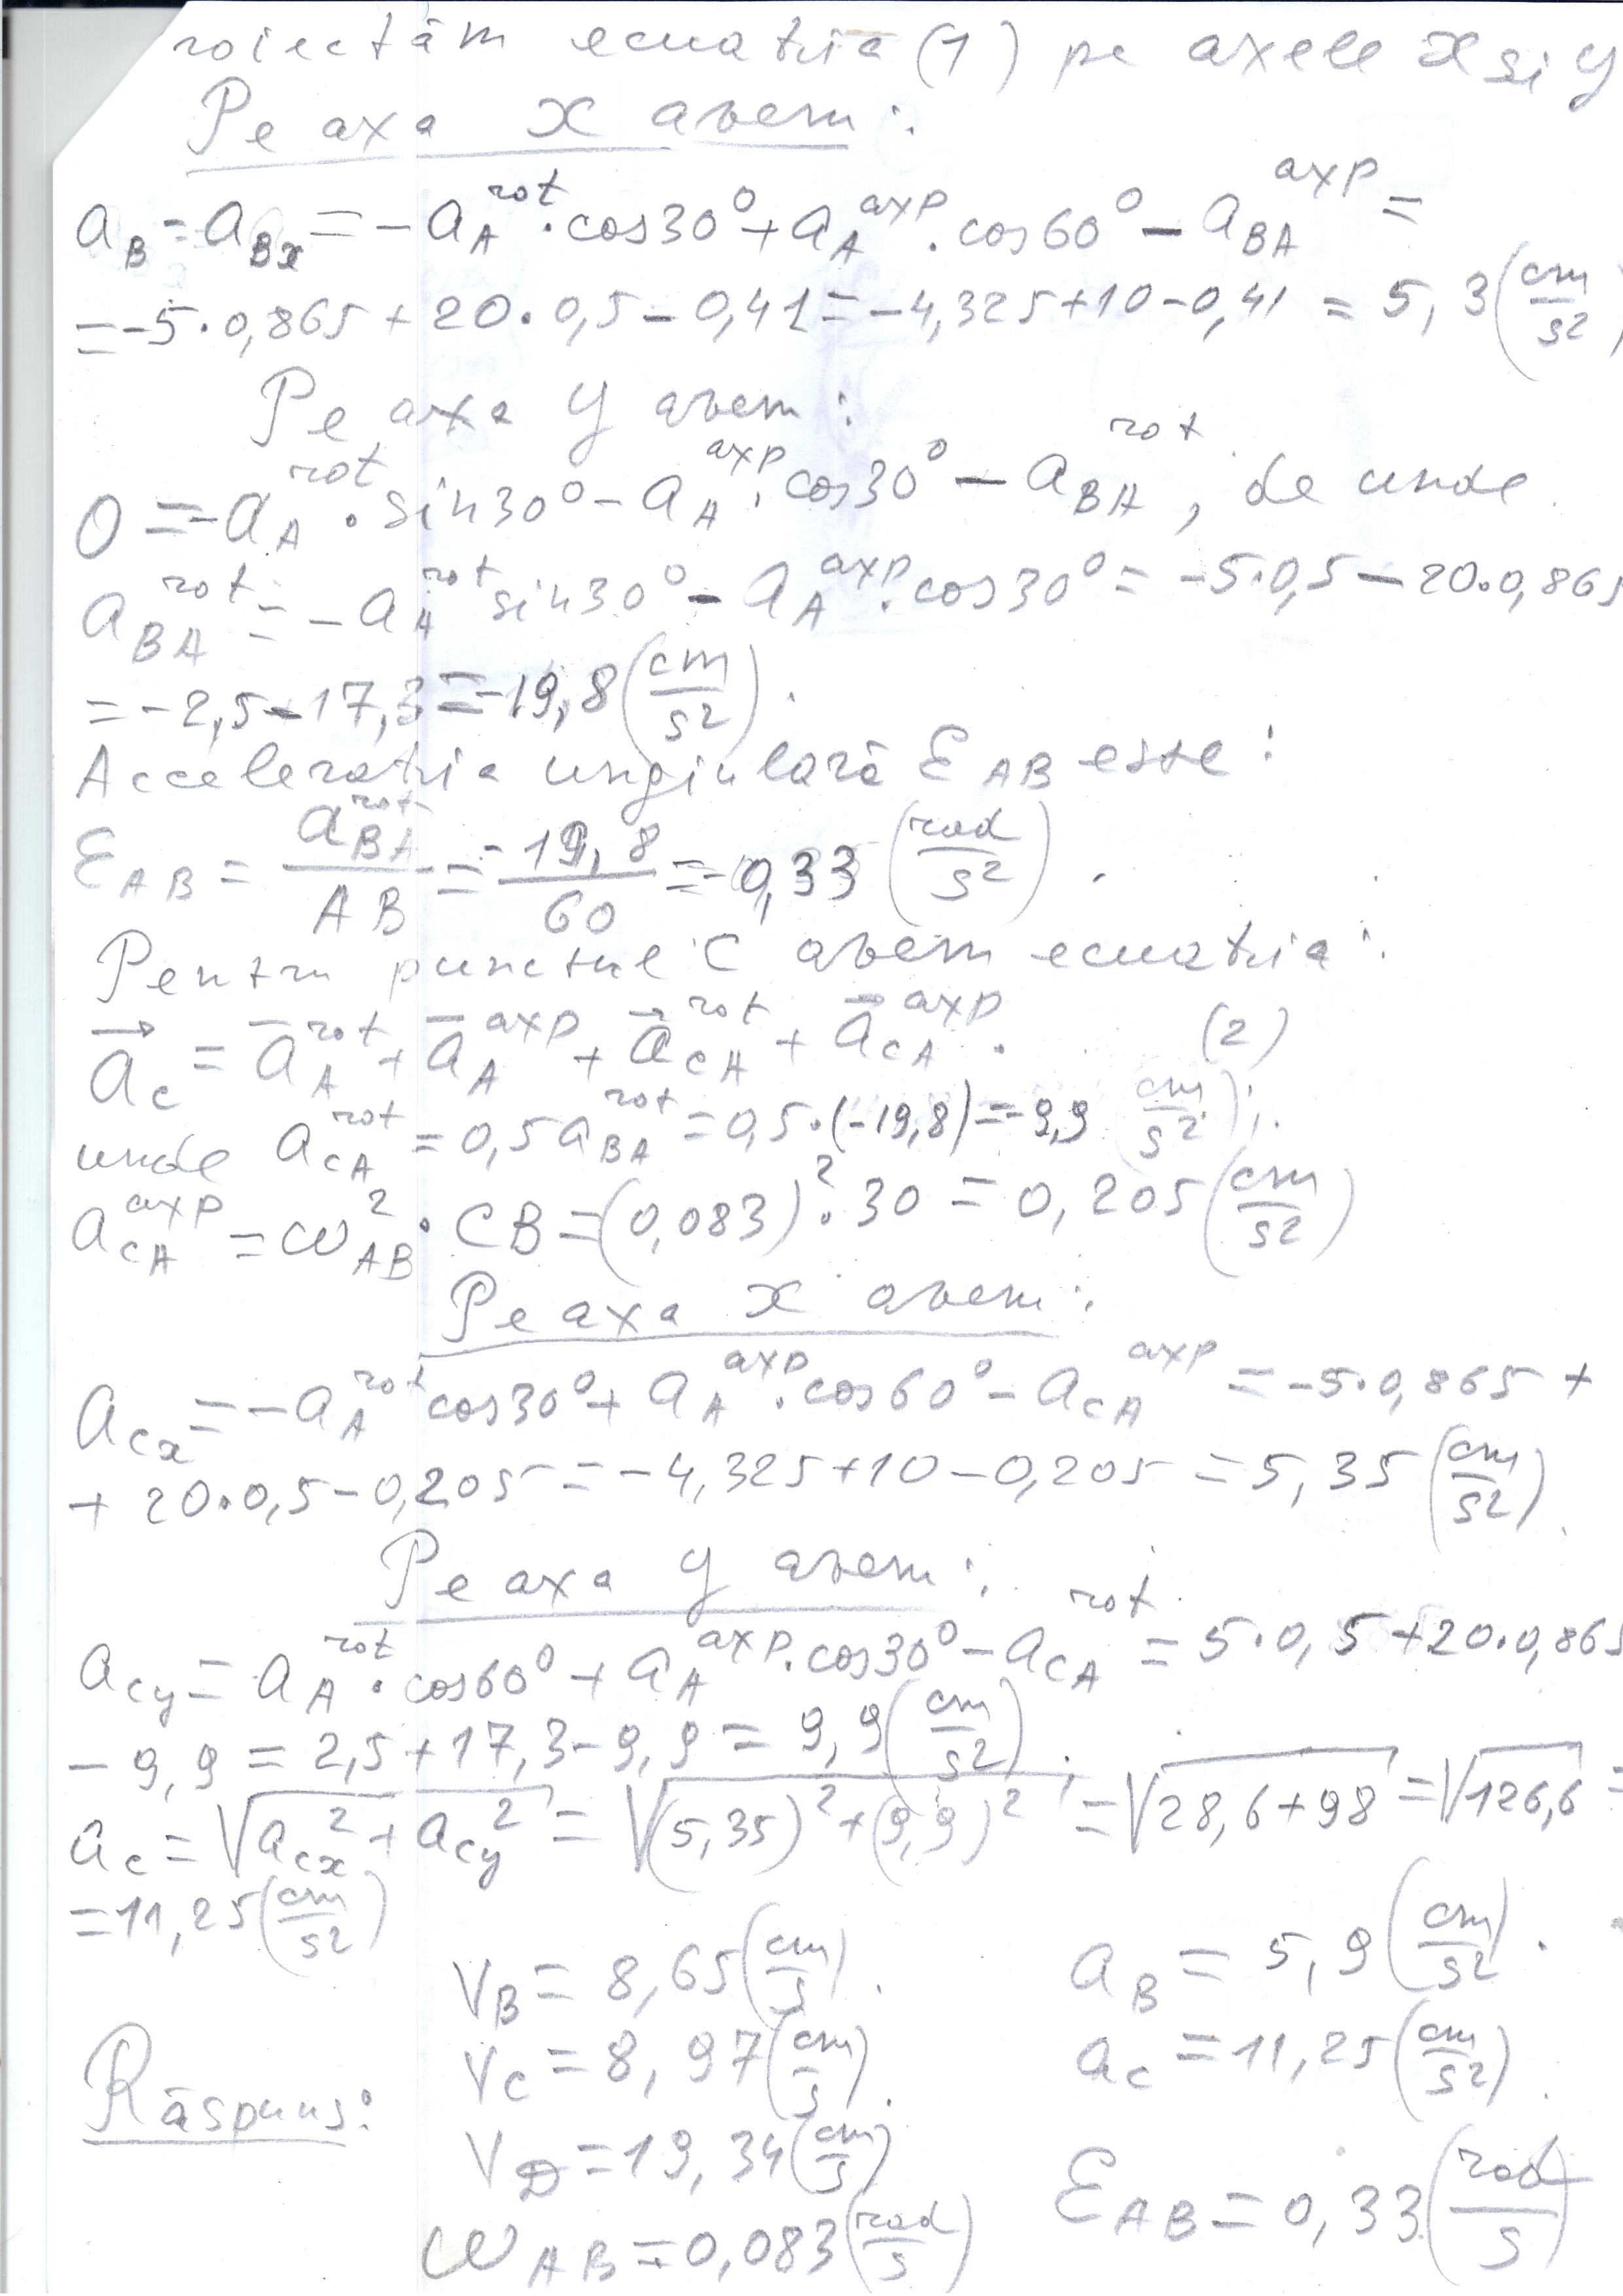 roiectăm ecuatria (1) pe axele x si y
Pe axa x avem:
a_B = a_Bx = -a_A^rot · cos30° + a_A^axp · cos60° - a_BA^axp =
= -5·0,865 + 20·0,5 - 0,41 = -4,325 + 10 - 0,41 = 5,3 (cm/s²)
Pe axa y avem:
0 = -a_A^rot · sin30° - a_A^axp · cos30° - a_BA^rot, de unde
a_BA^rot = -a_A^rot sin30° - a_A^axp · cos30° = -5·0,5 - 20·0,865
= -2,5 - 17,3 = -19,8 (cm/s²).
Acceleratria unghiulară ε_AB este:
ε_AB = a_BA^rot / AB = -19,8 / 60 = -0,33 (rad/s²).
Pentru punctul C avem ecuatria:
a_C = a_A^rot + a_A^axp + a_CA^rot + a_CA^axp. (2)
unde a_CA^rot = 0,5 a_BA^rot = 0,5·(-19,8) = -9,9 cm/s²);
a_CA^axp = ω_AB² · CB = (0,083)² · 30 = 0,205 (cm/s²)
Pe axa x avem:
a_Cx = -a_A^rot cos30° + a_A^axp · cos60° - a_CA^axp = -5·0,865 +
+ 20·0,5 - 0,205 = -4,325 + 10 - 0,205 = 5,35 (cm/s²).
Pe axa y avem:
a_Cy = a_A^rot · cos60° + a_A^axp · cos30° - a_CA^rot = 5·0,5 + 20·0,865
- 9,9 = 2,5 + 17,3 - 9,9 = 9,9 (cm/s²).
a_C = √(a_Cx² + a_Cy²) = √((5,35)² + (9,9)²) = √(28,6 + 98) = √126,6 =
= 11,25 (cm/s²)
V_B = 8,65 (cm/s). a_B = 5,9 (cm/s²).
V_C = 8,97 (cm/s). a_C = 11,25 (cm/s²).
Răspuns:
V_D = 19,34 (cm/s)
ω_AB = 0,083 (rad/s) ε_AB = 0,33 (rad/s)